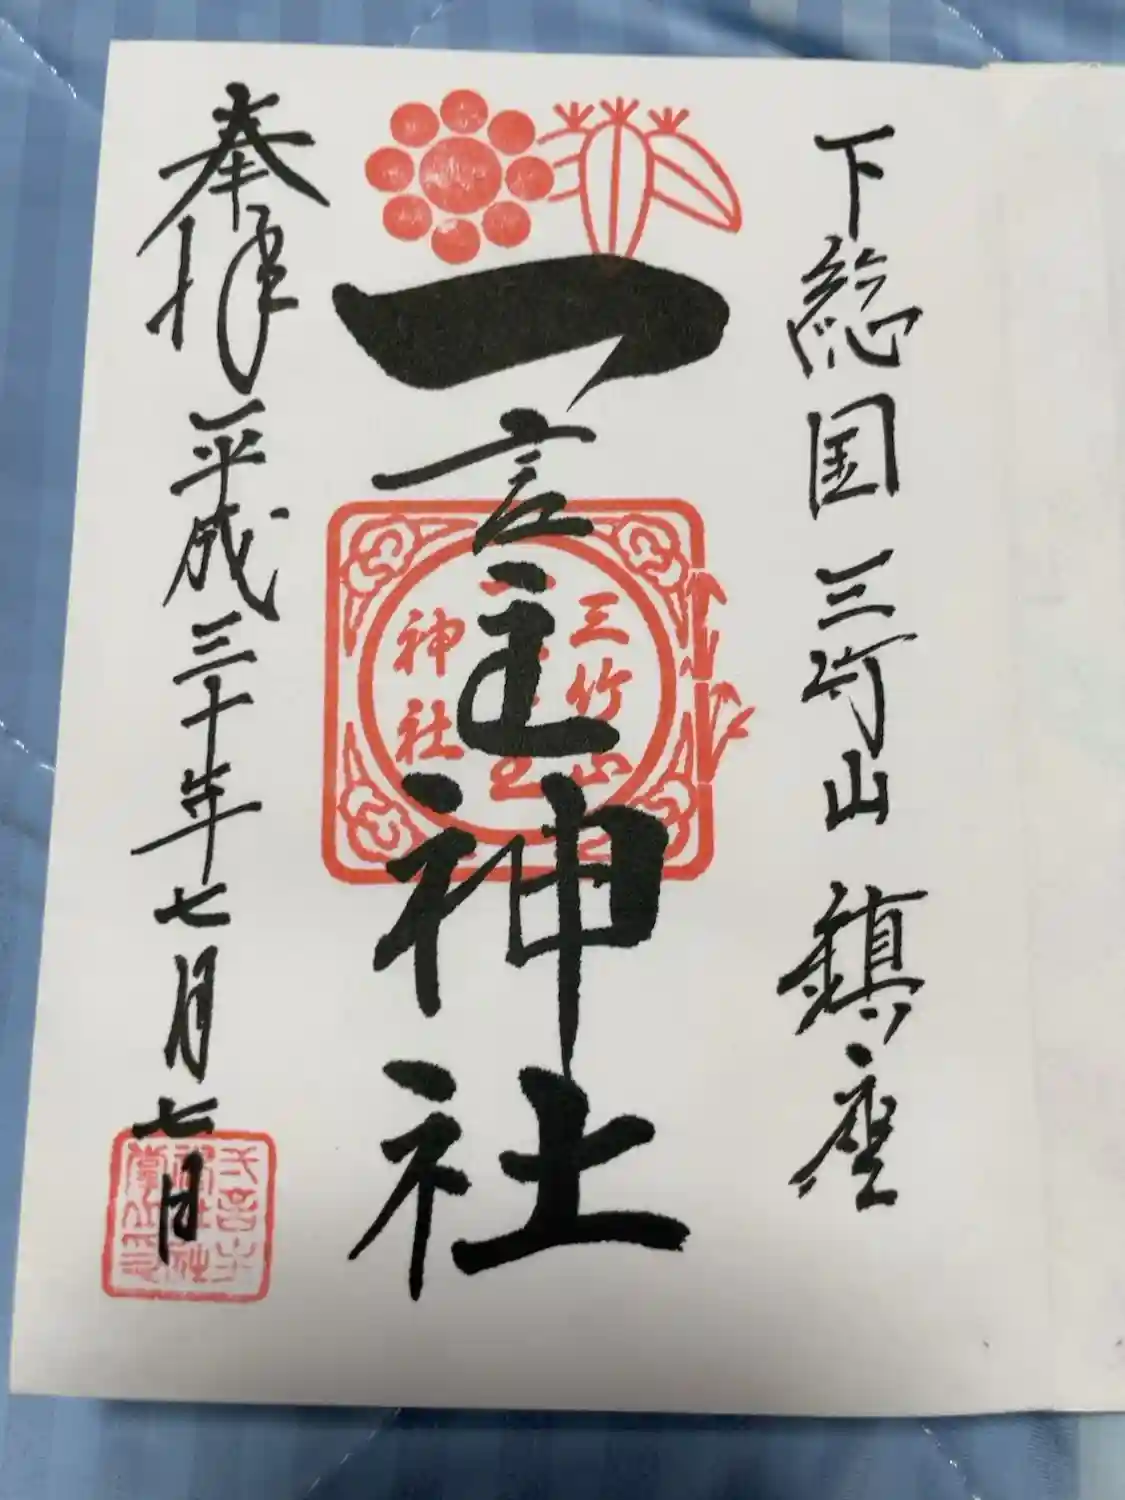 下総国三竹山鎮座
一言主神社
三竹山
神社
奉拝平成三十年七月七日